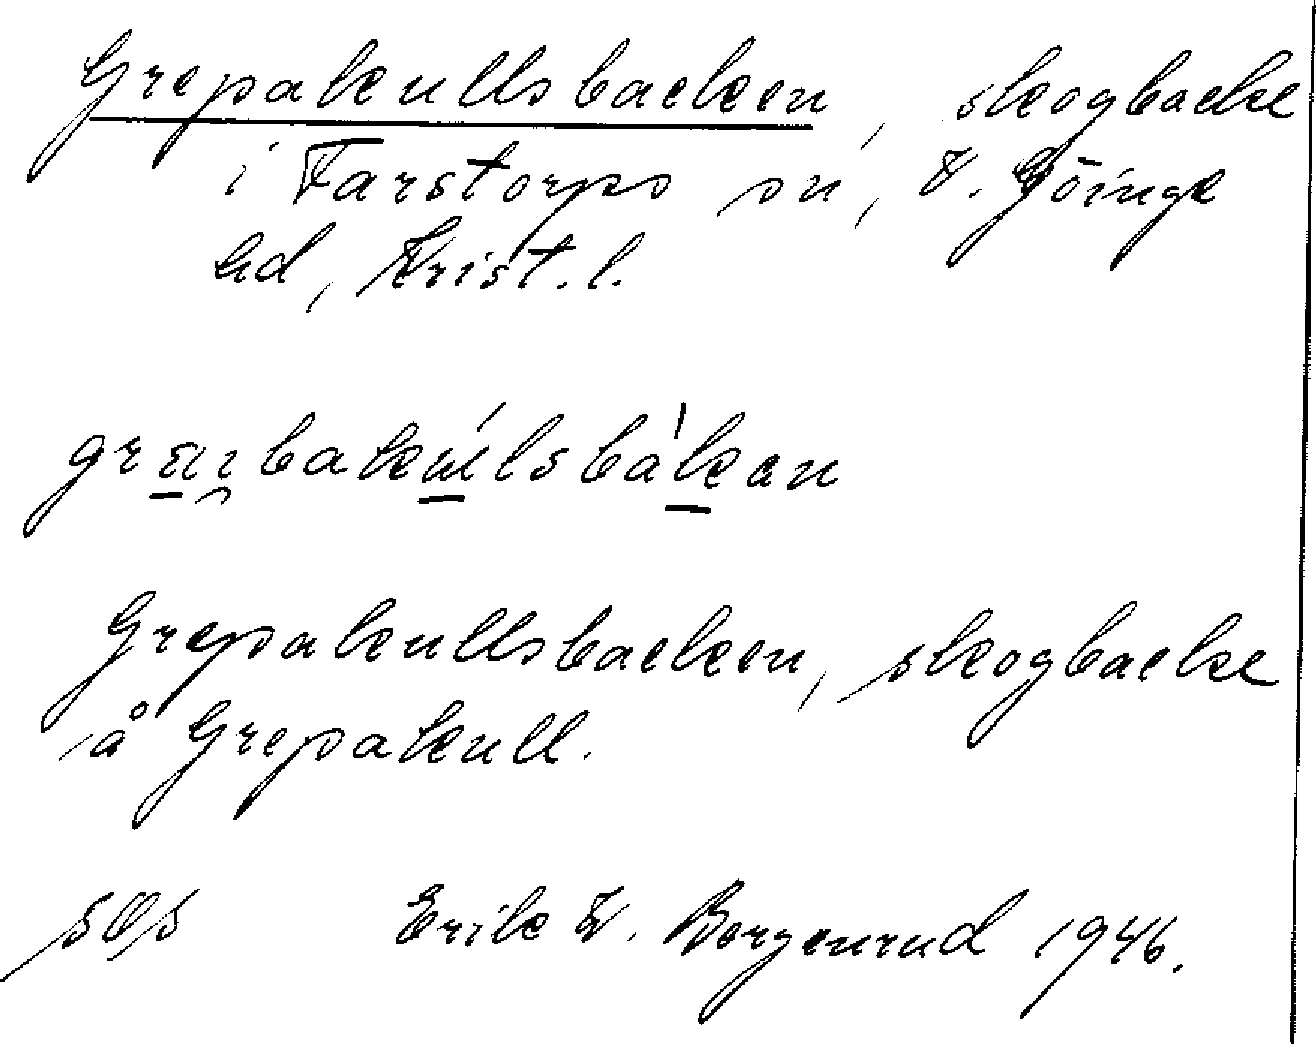 Grepakullsbacken, skogbacke
i Farstorps sn, V. Göinge
hd, Krist. l.
Grepakullsbacken, skogbacke
å Grepakull.
Erik W. Borgenrud 1946.